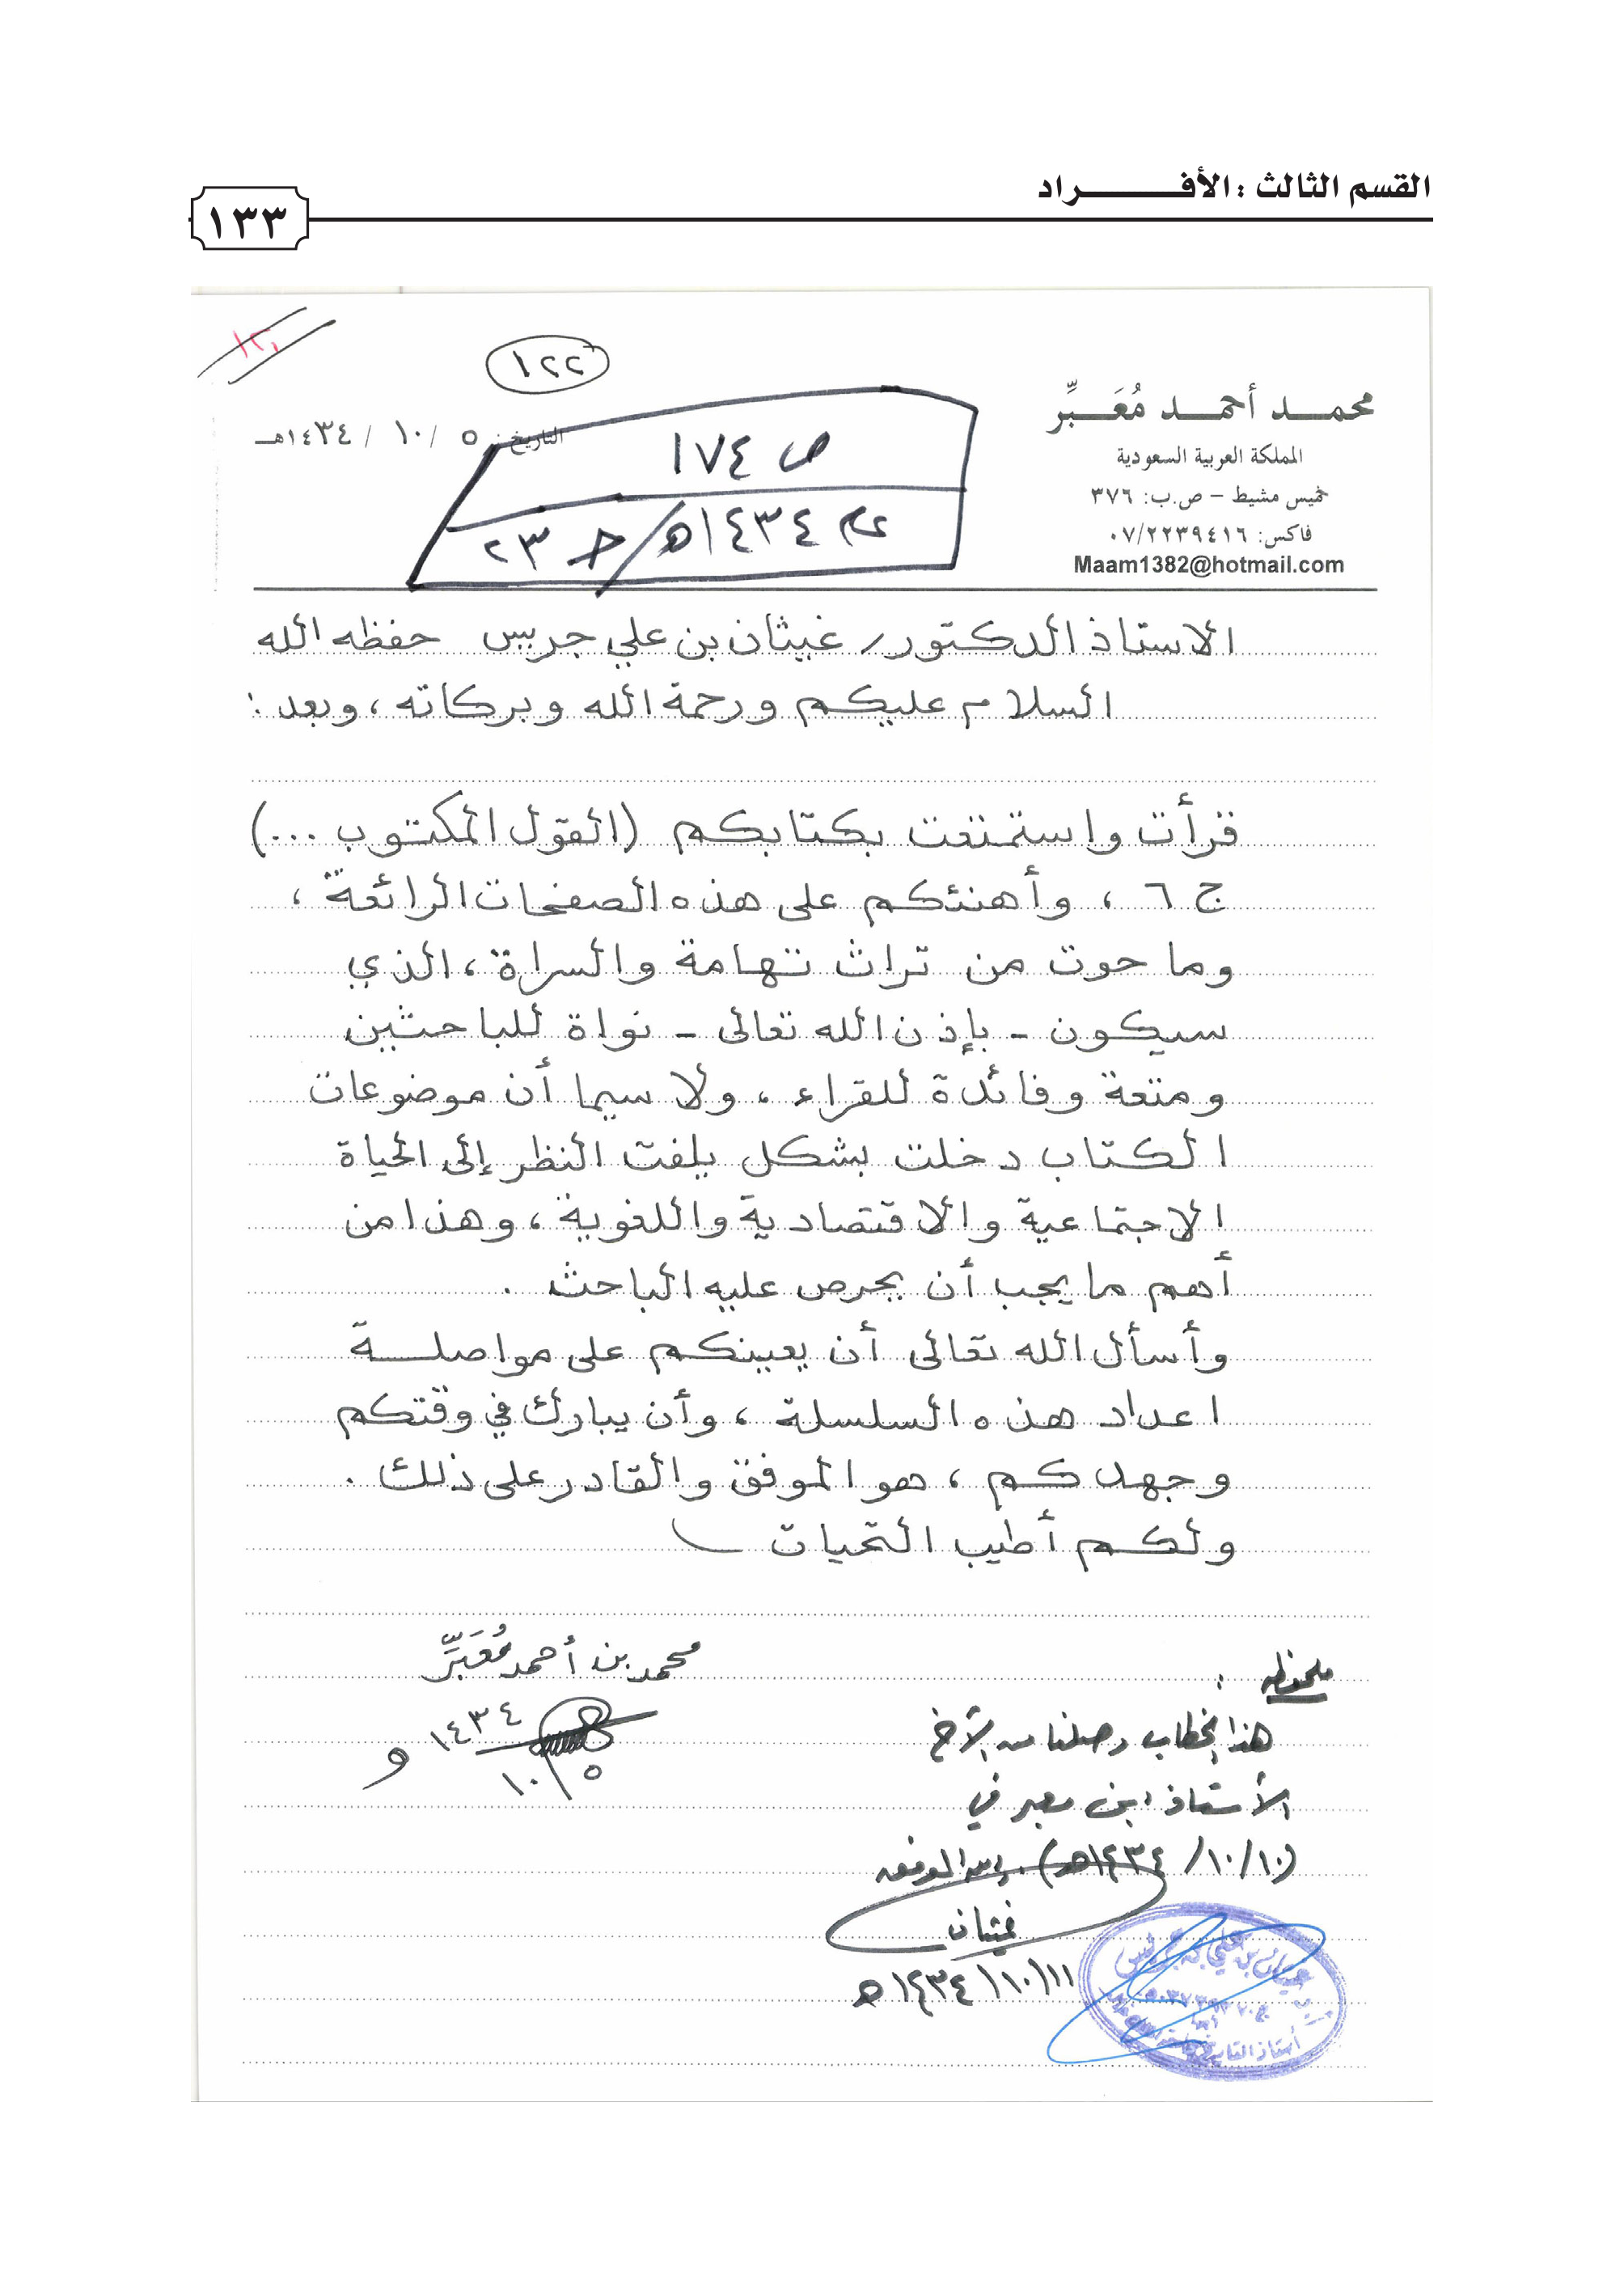 القسم الثالث : الأفـــراد
١٣٣
١٢٠
١٢٢
محمد أحمد مُعَبِّر
المملكة العربية السعودية
خميس مشيط – ص.ب: ٣٧٦
فاكس: ٠٧/٢٢٣٩٤١٦
Maam1382@hotmail.com
التاريخ: ٥ / ١٠ / ١٤٣٤هـ
ص ١٧٤
عام ١٤٣٤هـ / ج ٢٣
الاستاذ الدكتور / غيثان بن علي جريس حفظه الله
السلام عليكم ورحمة الله وبركاته ، وبعد :
قرأت واستمتعت بكتابكم (القول المكتوب ...)
ج ٦ ، وأهنئكم على هذه الصفحات الرائعة ،
وما حوت من تراث تهامة والسراة ، الذي
سيكون - بإذن الله تعالى - نواة للباحثين
ومتعة وفائدة للقراء ، ولا سيما أن موضوعات
الكتاب دخلت بشكل يلفت النظر إلى الحياة
الاجتماعية والاقتصادية واللغوية ، وهذا من
أهم ما يجب أن يحرص عليه الباحث .
وأسأل الله تعالى أن يعينكم على مواصلة
اعداد هذه السلسلة ، وأن يبارك في وقتكم
وجهدكم ، هو الموفق والقادر على ذلك .
ولكم أطيب التحيات
محمد بن أحمد مُعَبِّر
١٤٣٤
١٠/٥
ملحوظه :
هذا الخطاب وصلنا من الأخ
الأستاذ ابن معبر في
(١٠/١٠/ ١٤٣٤هـ) . والله الموفق
غيثان
١١/١٠/١٤٣٤هـ
غيثان بن علي بن جريس
أستاذ التاريخ